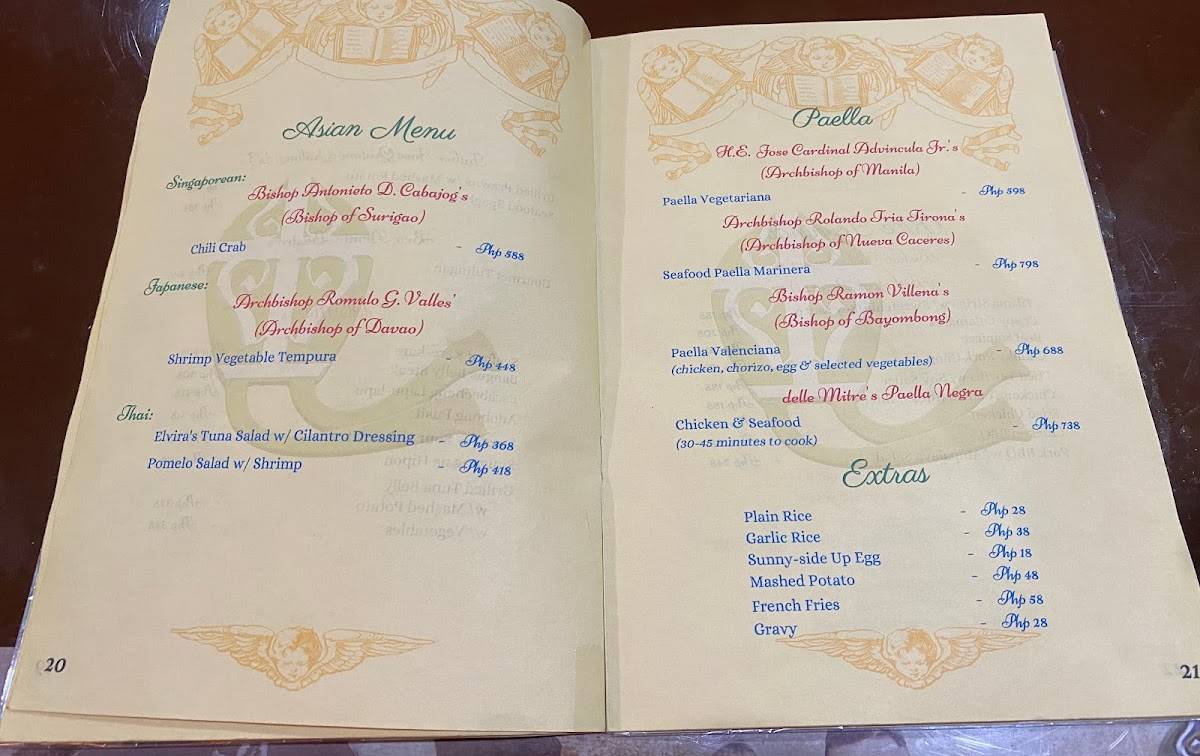 Asian Menu
Singaporean:
Bishop Antonieto D. Cabajog's
(Bishop of Surigao)
Chili Crab - Php 588
Japanese:
Archbishop Romulo G. Valles'
(Archbishop of Davao)
Shrimp Vegetable Tempura - Php 448
Thai:
Elvira's Tuna Salad w/ Cilantro Dressing - Php 368
Pomelo Salad w/ Shrimp - Php 418
20
Paella
H.E. Jose Cardinal Advincula Jr.'s
(Archbishop of Manila)
Paella Vegetariana - Php 598
Archbishop Rolando Tria Tirona's
(Archbishop of Nueva Caceres)
Seafood Paella Marinera - Php 798
Bishop Ramon Villena's
(Bishop of Bayombong)
Paella Valenciana - Php 688
(chicken, chorizo, egg & selected vegetables)
delle Mitre's Paella Negra
Chicken & Seafood - Php 738
(30-45 minutes to cook)
Extras
Plain Rice - Php 28
Garlic Rice - Php 38
Sunny-side Up Egg - Php 18
Mashed Potato - Php 48
French Fries - Php 58
Gravy - Php 28
21